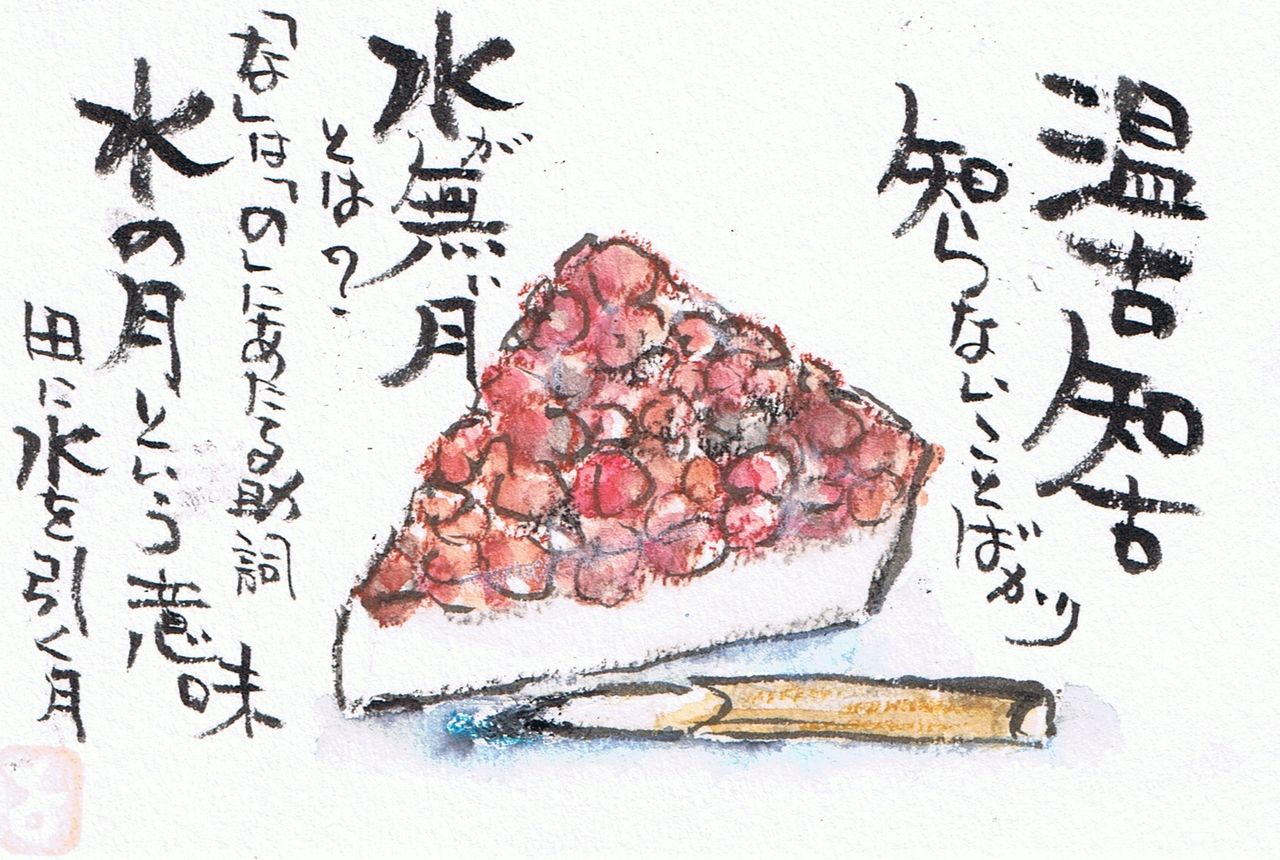 温古知古
知らないことばかり
水が無い月
とは?
「な」は「の」にあたる助詞
水の月という意味
田に水を引く月